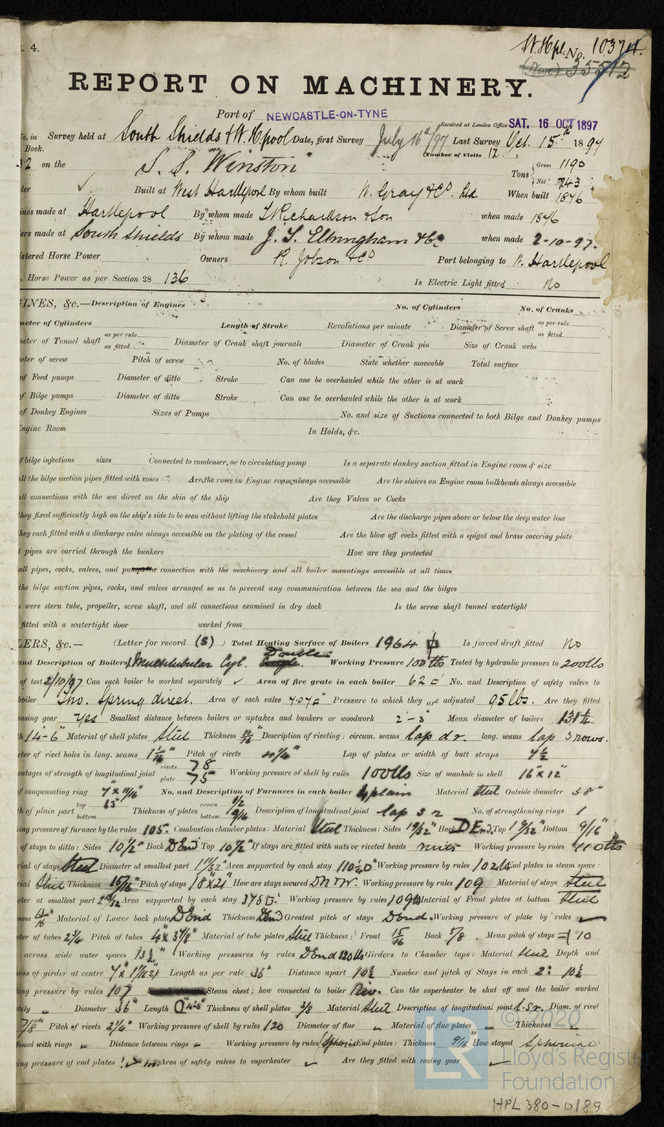 . 4.
W.Hpl No. 10374.
REPORT ON MACHINERY.
Port of NEWCASTLE-ON-TYNE
Received at London Office SAT. 16 OCT 1897
No. in Survey held at South Shields & W. Hpool Date, first Survey July 16th/97 Last Survey Oct. 15th 1897
Book. (Number of Visits 12
2 on the S.S. "Winston" Tons Gross 1190 Net 743
Built at West Hartlepool By whom built W. Gray & Co Ltd When built 1876
ines made at Hartlepool By whom made T. Richardson & Son when made 1876
ers made at South Shields By whom made J. T. Eltringham & Co. when made 2-10-97.
istered Horse Power Owners R. Jobson & Co Port belonging to W. Hartlepool
Horse Power as per Section 28 136 Is Electric Light fitted No
INES, &c.—Description of Engines No. of Cylinders No. of Cranks
meter of Cylinders Length of Stroke Revolutions per minute Diameter of Screw shaft as per rule as fitted
eter of Tunnel shaft as per rule as fitted Diameter of Crank shaft journals Diameter of Crank pin Size of Crank webs
ter of screw Pitch of screw No. of blades State whether moveable Total surface
of Feed pumps Diameter of ditto Stroke Can one be overhauled while the other is at work
of Bilge pumps Diameter of ditto Stroke Can one be overhauled while the other is at work
of Donkey Engines Sizes of Pumps No. and size of Suctions connected to both Bilge and Donkey pumps
Engine Room In Holds, &c.
f bilge injections sizes Connected to condenser, or to circulating pump Is a separate donkey suction fitted in Engine room & size
ll the bilge suction pipes fitted with roses Are the roses in Engine room always accessible Are the sluices on Engine room bulkheads always accessible
ll connections with the sea direct on the skin of the ship Are they Valves or Cocks
hey fixed sufficiently high on the ship's side to be seen without lifting the stokehold plates Are the discharge pipes above or below the deep water line
hey each fitted with a discharge valve always accessible on the plating of the vessel Are the blow off cocks fitted with a spigot and brass covering plate
t pipes are carried through the bunkers How are they protected
all pipes, cocks, valves, and pumps in connection with the machinery and all boiler mountings accessible at all times
the bilge suction pipes, cocks, and valves arranged so as to prevent any communication between the sea and the bilges
were stern tube, propeller, screw shaft, and all connections examined in dry dock Is the screw shaft tunnel watertight
fitted with a watertight door worked from
LERS, &c.— (Letter for record (S) ) Total Heating Surface of Boilers 1964 Is forced draft fitted No
and Description of Boilers 1 Multitubular Cyl. Double Working Pressure 100 lbs Tested by hydraulic pressure to 200 lbs
of test 2/10/97 Can each boiler be worked separately Area of fire grate in each boiler 62 No. and Description of safety valves to
boiler Two. Spring direct. Area of each valve 7.07 Pressure to which they are adjusted 95 lbs. Are they fitted
easing gear Yes Smallest distance between boilers or uptakes and bunkers or woodwork 2'-3" Mean diameter of boilers
14-6" Material of shell plates Steel Thickness Description of riveting: circum. seams lap d.r. long. seams lap 3 rows.
eter of rivet holes in long. seams 1 1/16" Pitch of rivets Lap of plates or width of butt straps
entages of strength of longitudinal joint rivets 78 plate 75 Working pressure of shell by rules 100 lbs Size of manhole in shell 16 x 12"
of compensating ring No. and Description of Furnaces in each boiler 4 plain Material Steel Outside diameter 38"
h of plain part top bottom Thickness of plates crown bottom Description of longitudinal joint lap 3 r No. of strengthening rings 1
ing pressure of furnace by the rules 105 Combustion chamber plates: Material Steel Thickness: Sides 19/32" Back D End Top 19/32" Bottom 9/16"
of stays to ditto: Sides 10 1/2" Back D End Top 10 1/2" If stays are fitted with nuts or riveted heads nuts Working pressure by rules
rial of stays Steel Diameter at smallest part Area supported by each stay 110 Working pressure by rules 102 lbs End plates in steam space:
rial Steel Thickness 15/16" Pitch of stays 18 x 21" How are stays secured D N & W. Working pressure by rules 109 Material of stays Steel
er at smallest part Area supported by each stay 378 Working pressure by rules 109 lbs Material of Front plates at bottom Steel
ness Material of Lower back plate D End Thickness D End Greatest pitch of stays D End Working pressure of plate by rules
ter of tubes Pitch of tubes Material of tube plates Steel Thickness: Front 15/16 Back 7/8 Mean pitch of stays 10
across wide water spaces Working pressures by rules D End 120 lbs Girders to Chamber tops: Material Steel Depth and
ness of girder at centre Length as per rule 36" Distance apart 10 1/2 Number and pitch of Stays in each 2: 10 1/2
ing pressure by rules 107 Steam chest; how connected to boiler Riv. Can the superheater be shut off and the boiler worked
tely Diameter 36" Length Thickness of shell plates 3/8 Material Steel Description of longitudinal joint l.s.r Diam. of rivet
7/8" Pitch of rivets Working pressure of shell by rules 120 Diameter of flue Material of flue plates Thickness
fened with rings Distance between rings Working pressure by rules End plates: Thickness 9/16" How stayed
ing pressure of end plates Area of safety valves to superheater Are they fitted with easing gear
© 2020
LR
Lloyd's Register
Foundation
HPL380-0189